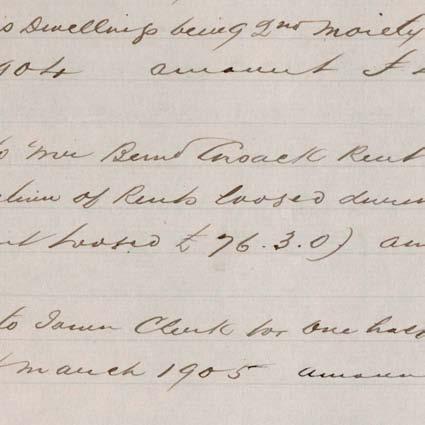 s Dwellings being 2nd Moiety
904 amount £
Mr Bernd Cusack Rent
ction of Rents loosed durin
nt loosed £76.3.0) am
to Town Clerk for One half
March 1905 amoun